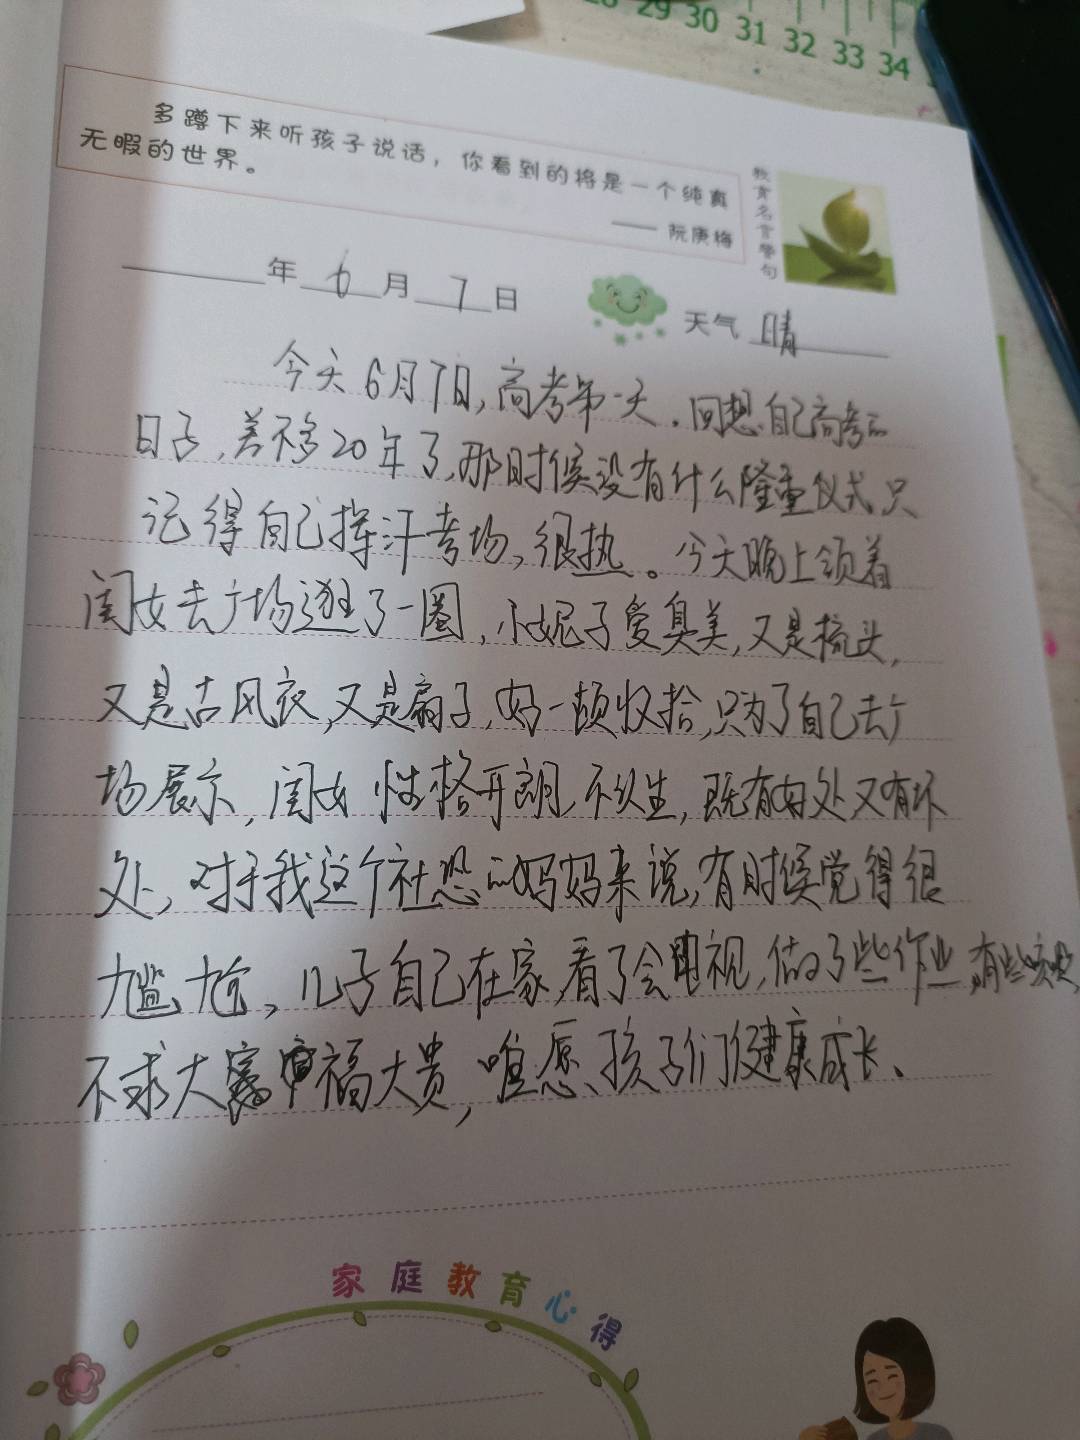 28 29 30 31 32 33 34
多蹲下来听孩子说话，你看到的将是一个纯真
无暇的世界。
—— 阮庚梅
教育名言警句
年 6 月 7 日
天气 晴
今天6月7日,高考第一天.回想自己高考的
日子,差不多20年了,那时候没有什么隆重仪式只
记得自己挥汗考场,很热。今天晚上领着
闺女去广场逛了一圈,小妮子爱臭美,又是梳头,
又是古风衣,又是扇子,好一顿收拾,只为了自己去广
场展示,闺女性格开朗,不认生,既有好处又有坏
处,对于我这个社恐的妈妈来说,有时候觉得很
尴尬,儿子自己在家,看了会电视,做了些作业,有些咳嗽,
不求大富 福大贵,唯愿、孩子们健康成长、
家庭教育心得